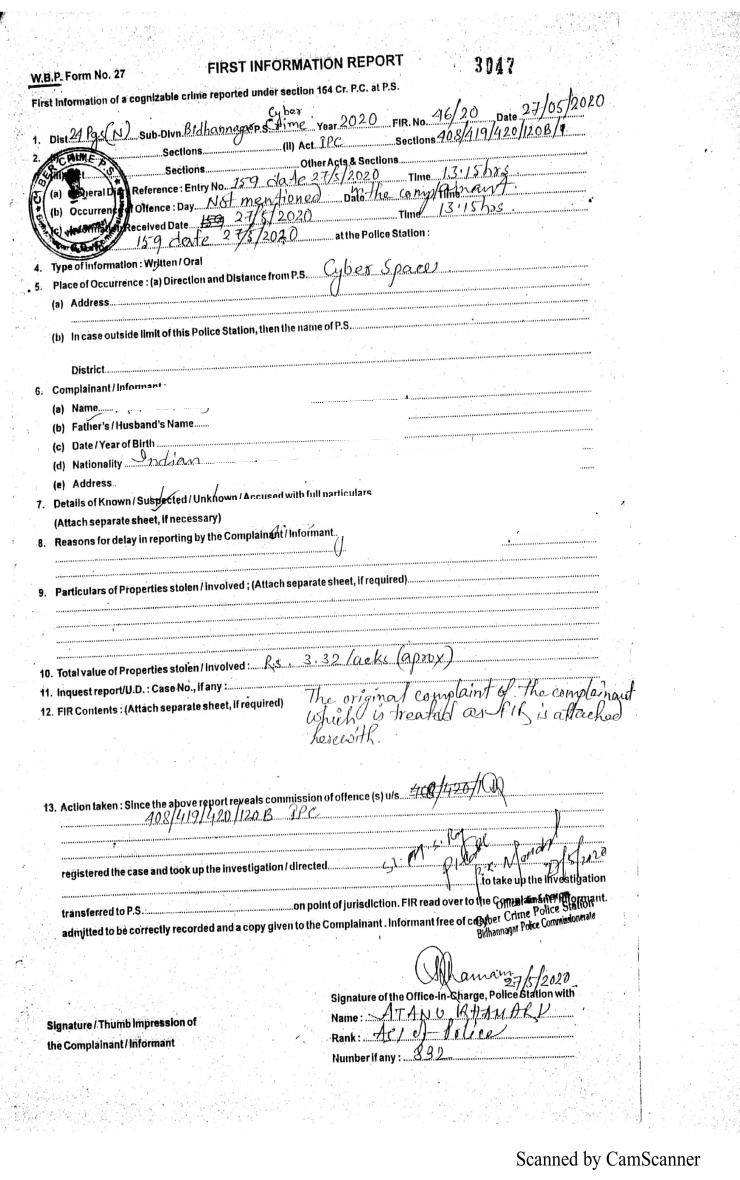 W.B.P. Form No. 27
FIRST INFORMATION REPORT
3047
First Information of a cognizable crime reported under section 154 Cr. P.C. at P.S.
1. Dist. 24 Pgs(N) Sub-Divn. Bidhannagar P.S. Cyber Crime Year 2020 FIR. No. 46/20 Date 27/05/2020
2. Sections (II) Act IPC Sections 408/419/420/120B
Sections Other Acts & Sections
(a) General Reference : Entry No. 159 date 27/5/2020 Time 13.15 hrs
(b) Occurrence of Offence : Day Not mentioned Date the complainant.
(c) Information Received Date 159 27/5/2020 Time 13.15 hrs
159 date 27/5/2020 at the Police Station :
CYBER CRIME P.S.
4. Type of Information : Written / Oral
5. Place of Occurrence : (a) Direction and Distance from P.S. Cyber Space
(a) Address
(b) In case outside limit of this Police Station, then the name of P.S.
District
6. Complainant / Informant :
(a) Name
(b) Father's / Husband's Name
(c) Date / Year of Birth
(d) Nationality Indian
(e) Address
7. Details of Known / Suspected / Unknown / Accused with full particulars
(Attach separate sheet, if necessary)
8. Reasons for delay in reporting by the Complainant / Informant
9. Particulars of Properties stolen / Involved ; (Attach separate sheet, if required)
10. Total value of Properties stolen / Involved : Rs. 3.32 lacks (aprox)
11. Inquest report/U.D. : Case No., if any :
12. FIR Contents : (Attach separate sheet, if required) The original complaint of the complainant
which is treated as FIR is attached
herewith.
13. Action taken : Since the above report reveals commission of offence (s) u/s. 408/420/
408/419/420/120B IPC
registered the case and took up the investigation / directed SI. M. S. Roy
27/5/2020
to take up the Investigation
transferred to P.S. on point of jurisdiction. FIR read over to the Complainant / Informant.
admitted to be correctly recorded and a copy given to the Complainant. Informant free of cost
Cyber Crime Police Station
Bidhannagar Police Commissionerate
27/5/2020
Signature of the Office-in-Charge, Police Station with
Signature / Thumb Impression of
the Complainant / Informant
Name : ATANU
Rank : of Police
Number if any : 892
Scanned by CamScanner